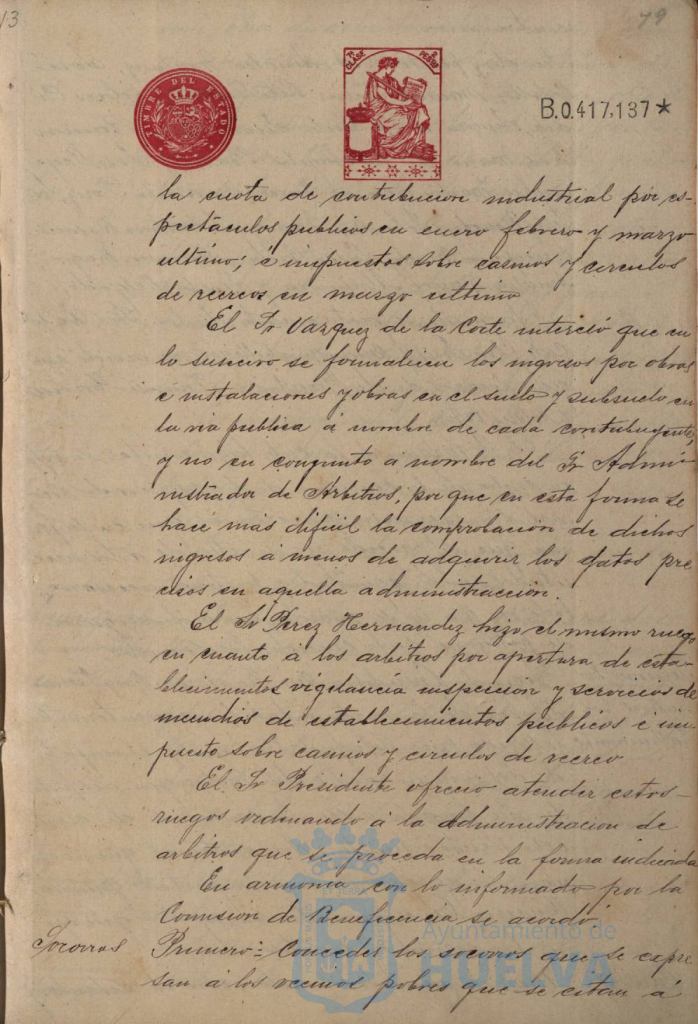 13
79
TIMBRE DEL ESTADO
7ª CLASE
PESETAS
B.0.417,137*
la cuota de contribucion industrial por es-
pectáculos publicos en enero febrero y marzo
ultimo; é impuestos sobre casinos y circulos
de recreos en marzo ultimo
El Sr Vazquez de la Corte interesó que en
lo sucesivo se formalicen los ingresos por obras
é instalaciones y obras en el suelo y subsuelo en
la via publica á nombre de cada contribuyente,
y no en conjunto á nombre del Sr Admi-
nistrador de Arbitrios, por que en esta forma se
hace más dificil la comprobación de dichos
ingresos á menos de adquirir los datos pre
cisos en aquella administracción.
El Sr Perez Hernandez hizo el mismo ruego
en cuanto á los arbitrios por apertura de esta-
blecimientos vigilancia inspección y servicios de
incendios de establecimientos publicos é im-
puesto sobre casinos y circulos de recreo
El Sr Presidente ofreció atender estos
ruegos ordenando á la Administracion de
arbitrios que se proceda en la forma indicada
En armonia con lo informado por la
Comision de Beneficencia se acordó
Socorros
Primero: Conceder los socorros que se expre
san á los vecinos pobres que se citan á
Ayuntamiento de
HUELVA